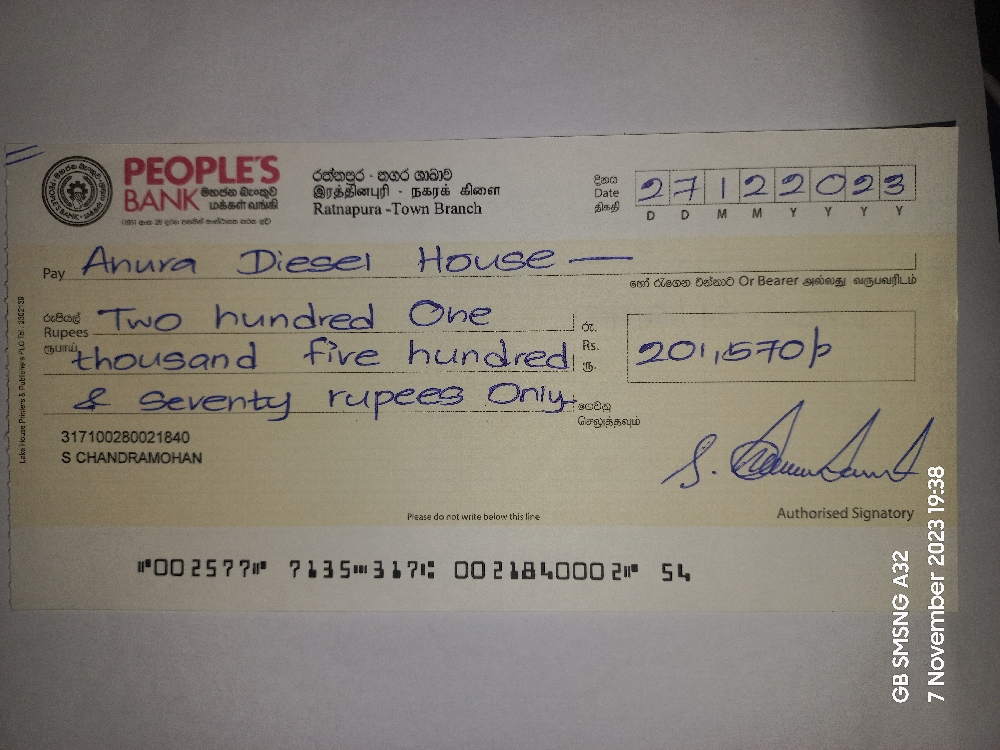 PEOPLE'S
BANK මහජන බැංකුව
மக்கள் வங்கி
රත්නපුර - නගර ශාඛාව
இரத்தினபுரி - நகரக் கிளை
Ratnapura -Town Branch
දිනය
Date
திகதி
2 7 1 2 2 0 2 3
D D M M Y Y Y Y
Pay Anura Diesel House —
හෝ රැගෙන එන්නාට Or Bearer அல்லது வருபவரிடம்
රුපියල්
Rupees
ரூபாய்
Two hundred One
thousand five hundred
& Seventy rupees Only
රු.
Rs.
ரூ.
201,570/
ගෙවනු
செலுத்தவும்
317100280021840
S CHANDRAMOHAN
Authorised Signatory
Please do not write below this line
⑈002577⑈ 7135⑉317⑆ 0021840002⑈ 54
Lake House Printers & Publishers PLC Tel : 2302139
GB SMSNG A32
7 November 2023 19:38